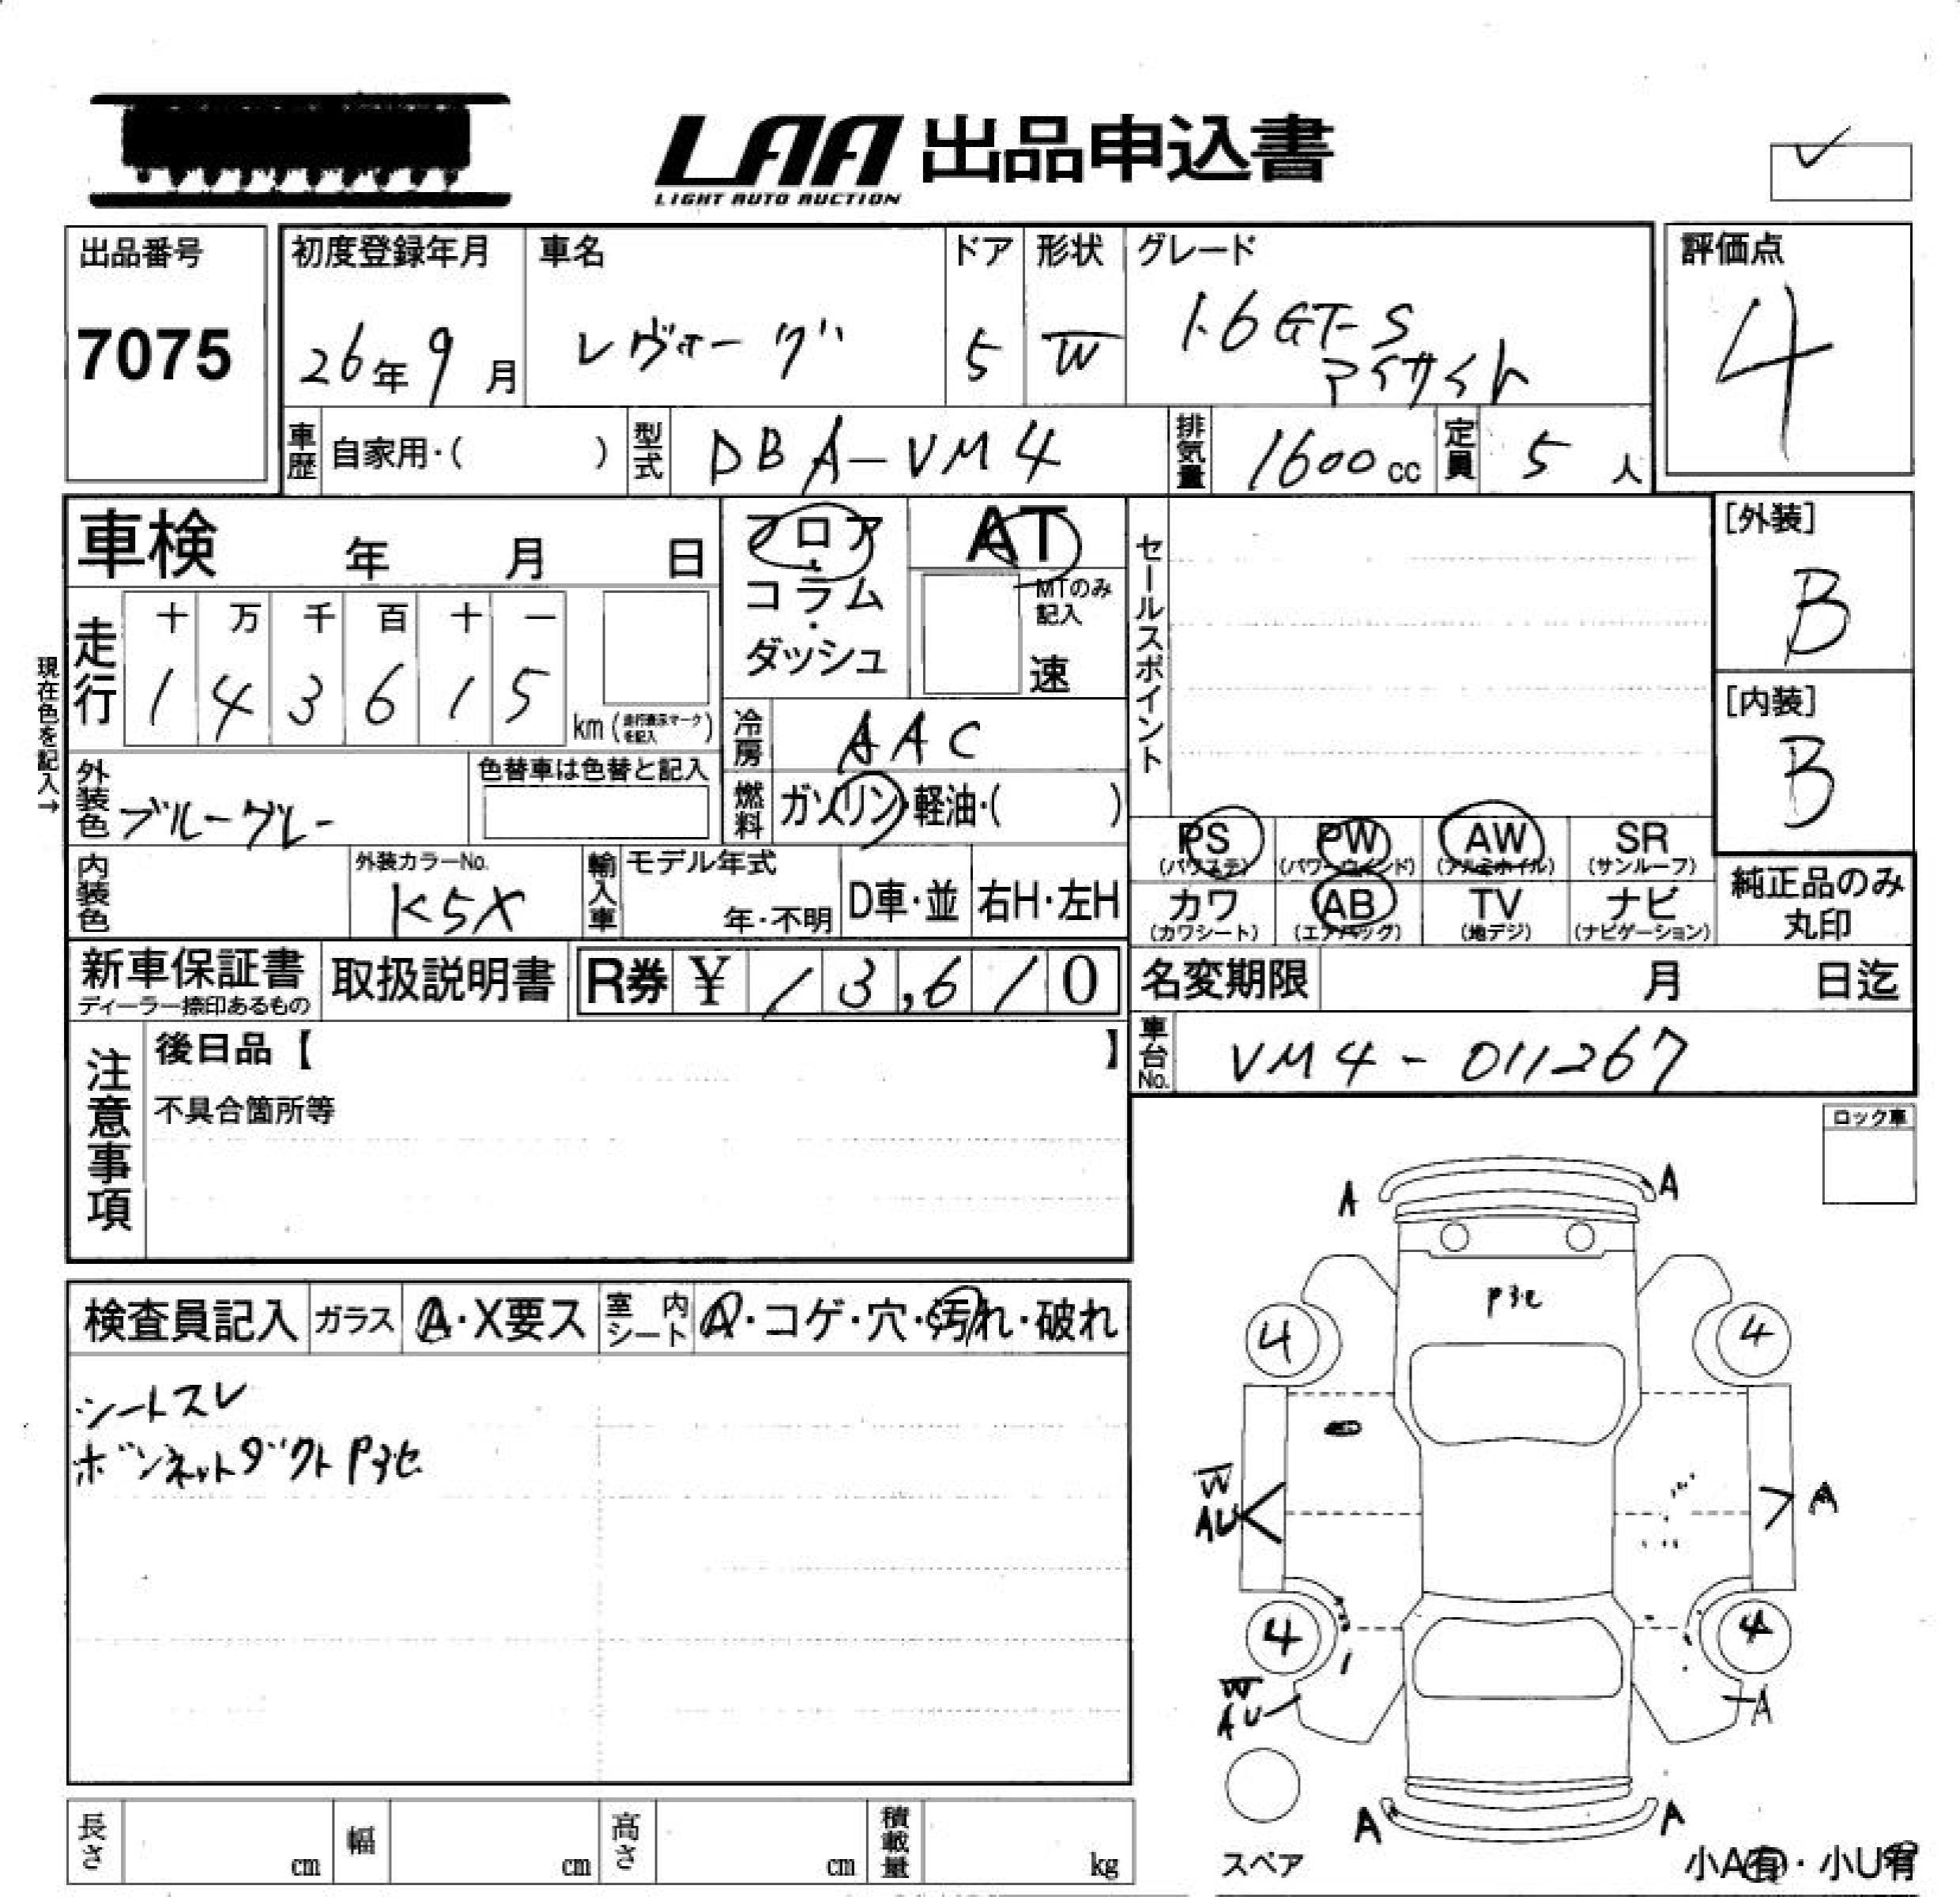 LAA 出品申込書
LIGHT AUTO AUCTION
出品番号
7075
初度登録年月
26年9月
車名
レヴォーグ
ドア
5
形状
W
グレード
1.6GT-S
アイサイト
評価点
4
車歴
自家用・( )
型式
DBA-VM4
排気量
1600cc
定員
5人
車検 年 月 日
フロア・コラム・ダッシュ
AT
MTのみ記入
速
セールスポイント
[外装]
B
[内装]
B
現在色を記入→
走行
十 万 千 百 十 一
1 4 3 6 1 5
km (走行表示マークを記入)
冷房
AAC
燃料
ガソリン・軽油・( )
外装色
ブルーグレー
色替車は色替と記入
内装色
外装カラーNo.
K5X
輸入車
モデル年式
年・不明
D車・並
右H・左H
PS (パワステ)
PW (パワーウィンド)
AW (アルミホイル)
SR (サンルーフ)
カワ (カワシート)
AB (エアバッグ)
TV (地デジ)
ナビ (ナビゲーション)
純正品のみ丸印
新車保証書
ディーラー捺印あるもの
取扱説明書
R券 ¥ 13,610
名変期限 月 日迄
車台No.
VM4-011267
注意事項
後日品【 】
不具合箇所等
ロック車
検査員記入
ガラス
A・X要ス
室内シート
A・コゲ・穴・汚れ・破れ
シートスレ
ボンネットダクトPヨセ
A A
Pヨセ
4 4
W
AU
A
4 4
W
AU
A
A A
スペア
小A有・小U有
長さ cm
幅 cm
高さ cm
積載量 kg